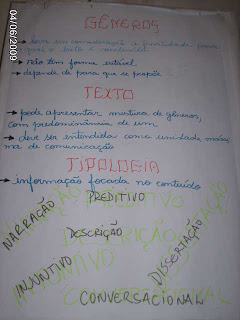 04/06/2009
GÊNEROS
→ leva em consideração a finalidade para
qual o texto é produzido.
→ não têm forma estável
→ depende de para que se propõe
TEXTO
→ pode apresentar mistura de gêneros,
com predominância de um
→ deve ser entendida como unidade máxi
ma de comunicação
TIPOLOGIA
→ informação focada no conteúdo
PREDITIVO
NARRAÇÃO
DESCRIÇÃO
DISSERTAÇÃO
INJUNTIVO
CONVERSACIONAL